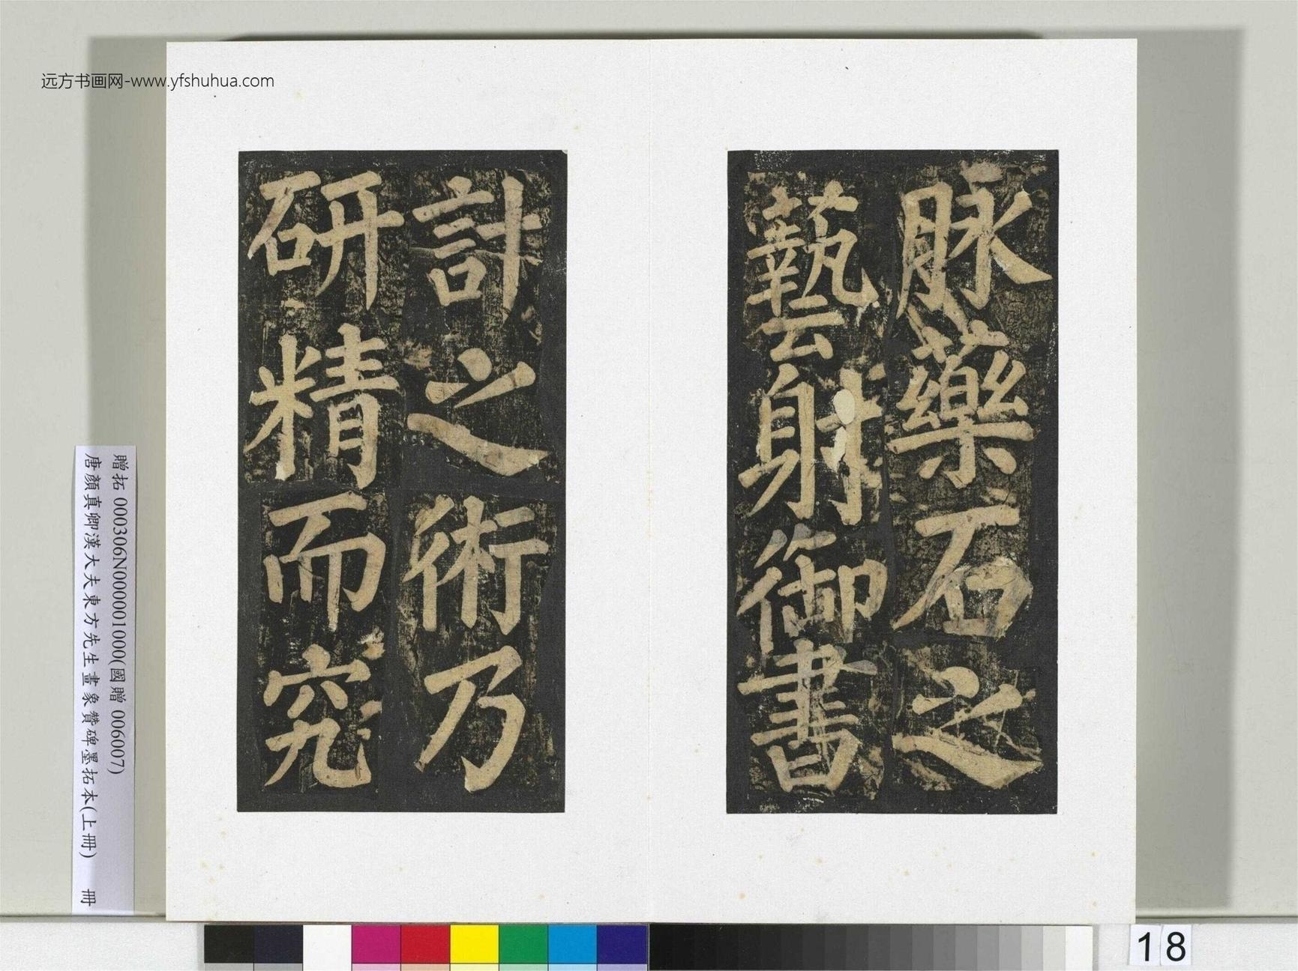 远方书画网-www.yfshuhua.com
脉藥石之
藝射御書
計之術乃
研精而究
贈拓 000306N000001000(國贈 006007)
唐顏真卿漢大夫東方先生畫象贊碑墨拓本(上冊) 冊
18